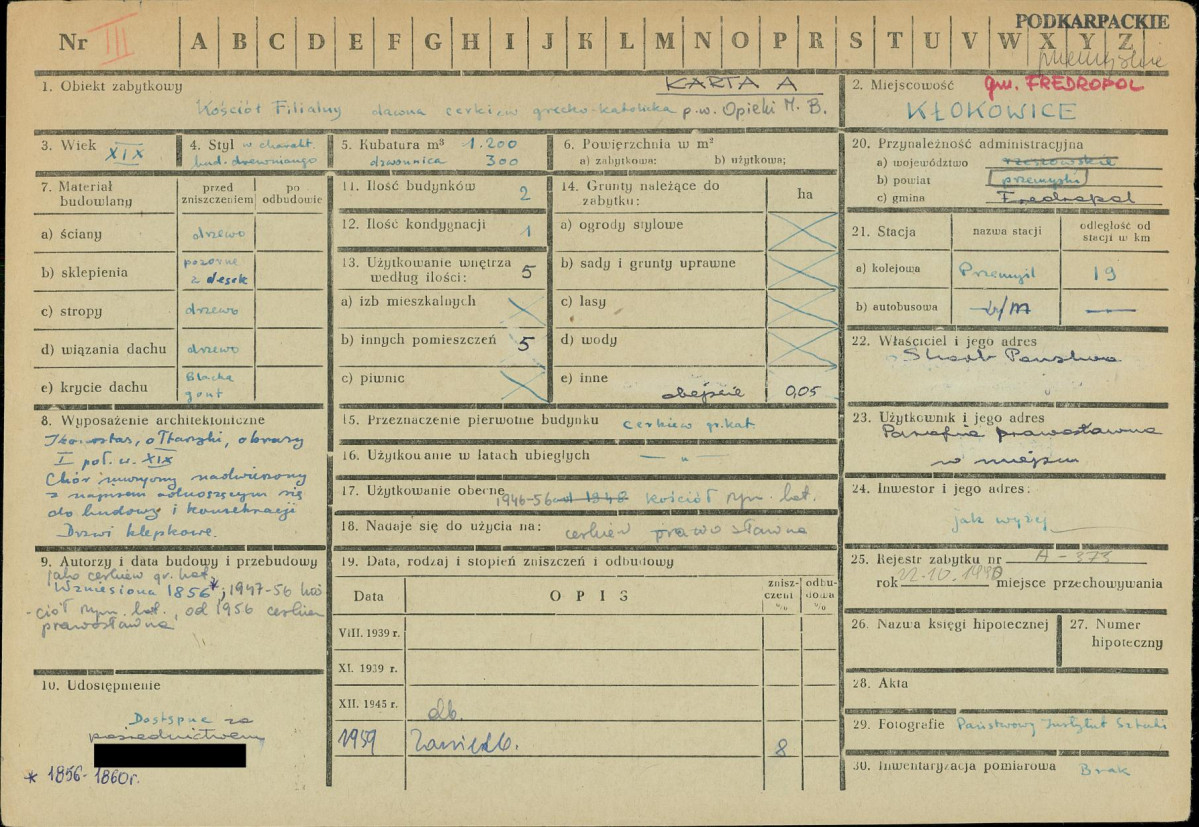 PODKARPACKIE
Nr III A B C D E F G H I J K L M N O P R S T U V W X Y Z
przemyskie
KARTA A
1. Obiekt zabytkowy
Kościół Filialny dawna cerkiew grecko-katolicka p.w. Opieki M. B.
2. Miejscowość gm. FREDROPOL
KŁOKOWICE
3. Wiek XIX
4. Styl w charakt.
bud. drewnianego
5. Kubatura m³ 1.200
dzwonnica 300
6. Powierzchnia w m²
a) zabytkowa: b) użytkowa;
20. Przynależność administracyjna
a) województwo rzeszowskie
b) powiat przemyski
c) gmina Fredropol
7. Materiał budowlany
przed zniszczeniem
po odbudowie
a) ściany drzewo
b) sklepienia pozorne z desek
c) stropy drzewo
d) wiązania dachu drzewo
e) krycie dachu Blacha gont
11. Ilość budynków 2
12. Ilość kondygnacji 1
13. Użytkowanie wnętrza według ilości: 5
a) izb mieszkalnych
b) innych pomieszczeń 5
c) piwnic
14. Grunty należące do zabytku:
ha
a) ogrody stylowe
b) sady i grunty uprawne
c) lasy
d) wody
e) inne obejście 0,05
21. Stacja
nazwa stacji
odległość od stacji w km
a) kolejowa Przemyśl 19
b) autobusowa —
22. Właściciel i jego adres
Skarb Państwa
8. Wyposażenie architektoniczne
Ikonostas, ołtarzyki, obrazy
I poł. w. XIX
Chór muzyczny nadwieszony
z napisem odnoszącym się
do budowy i konsekracji
Drzwi klepkowe.
15. Przeznaczenie pierwotne budynku cerkiew gr. kat.
16. Użytkowanie w latach ubiegłych — „ —
17. Użytkowanie obecne 1946-56 od 1948 kościół rzym. kat.
18. Nadaje się do użycia na: cerkiew prawosławna
23. Użytkownik i jego adres
Parafia prawosławna
w miejscu
24. Inwestor i jego adres:
jak wyżej
9. Autorzy i data budowy i przebudowy
jako cerkiew gr. kat.
Wzniesiona 1856*; 1947-56 koś
-ciół rzym. kat., od 1956 cerkiew
prawosławna
19. Data, rodzaj i stopień zniszczeń i odbudowy
Data
OPIS
zniszczeni %
odbudowa %
VIII. 1939 r.
XI. 1939 r.
XII. 1945 r. db.
1959 Zaniedb. 8
25. Rejestr zabytku nr A-373
rok 22.10.1990 miejsce przechowywania
26. Nazwa księgi hipotecznej
27. Numer hipoteczny
28. Akta
29. Fotografie Państwowy Instytut Sztuki
30. Inwentaryzacja pomiarowa Brak
10. Udostępnienie
Dostępne za
pośrednictwem
* 1856-1860r.